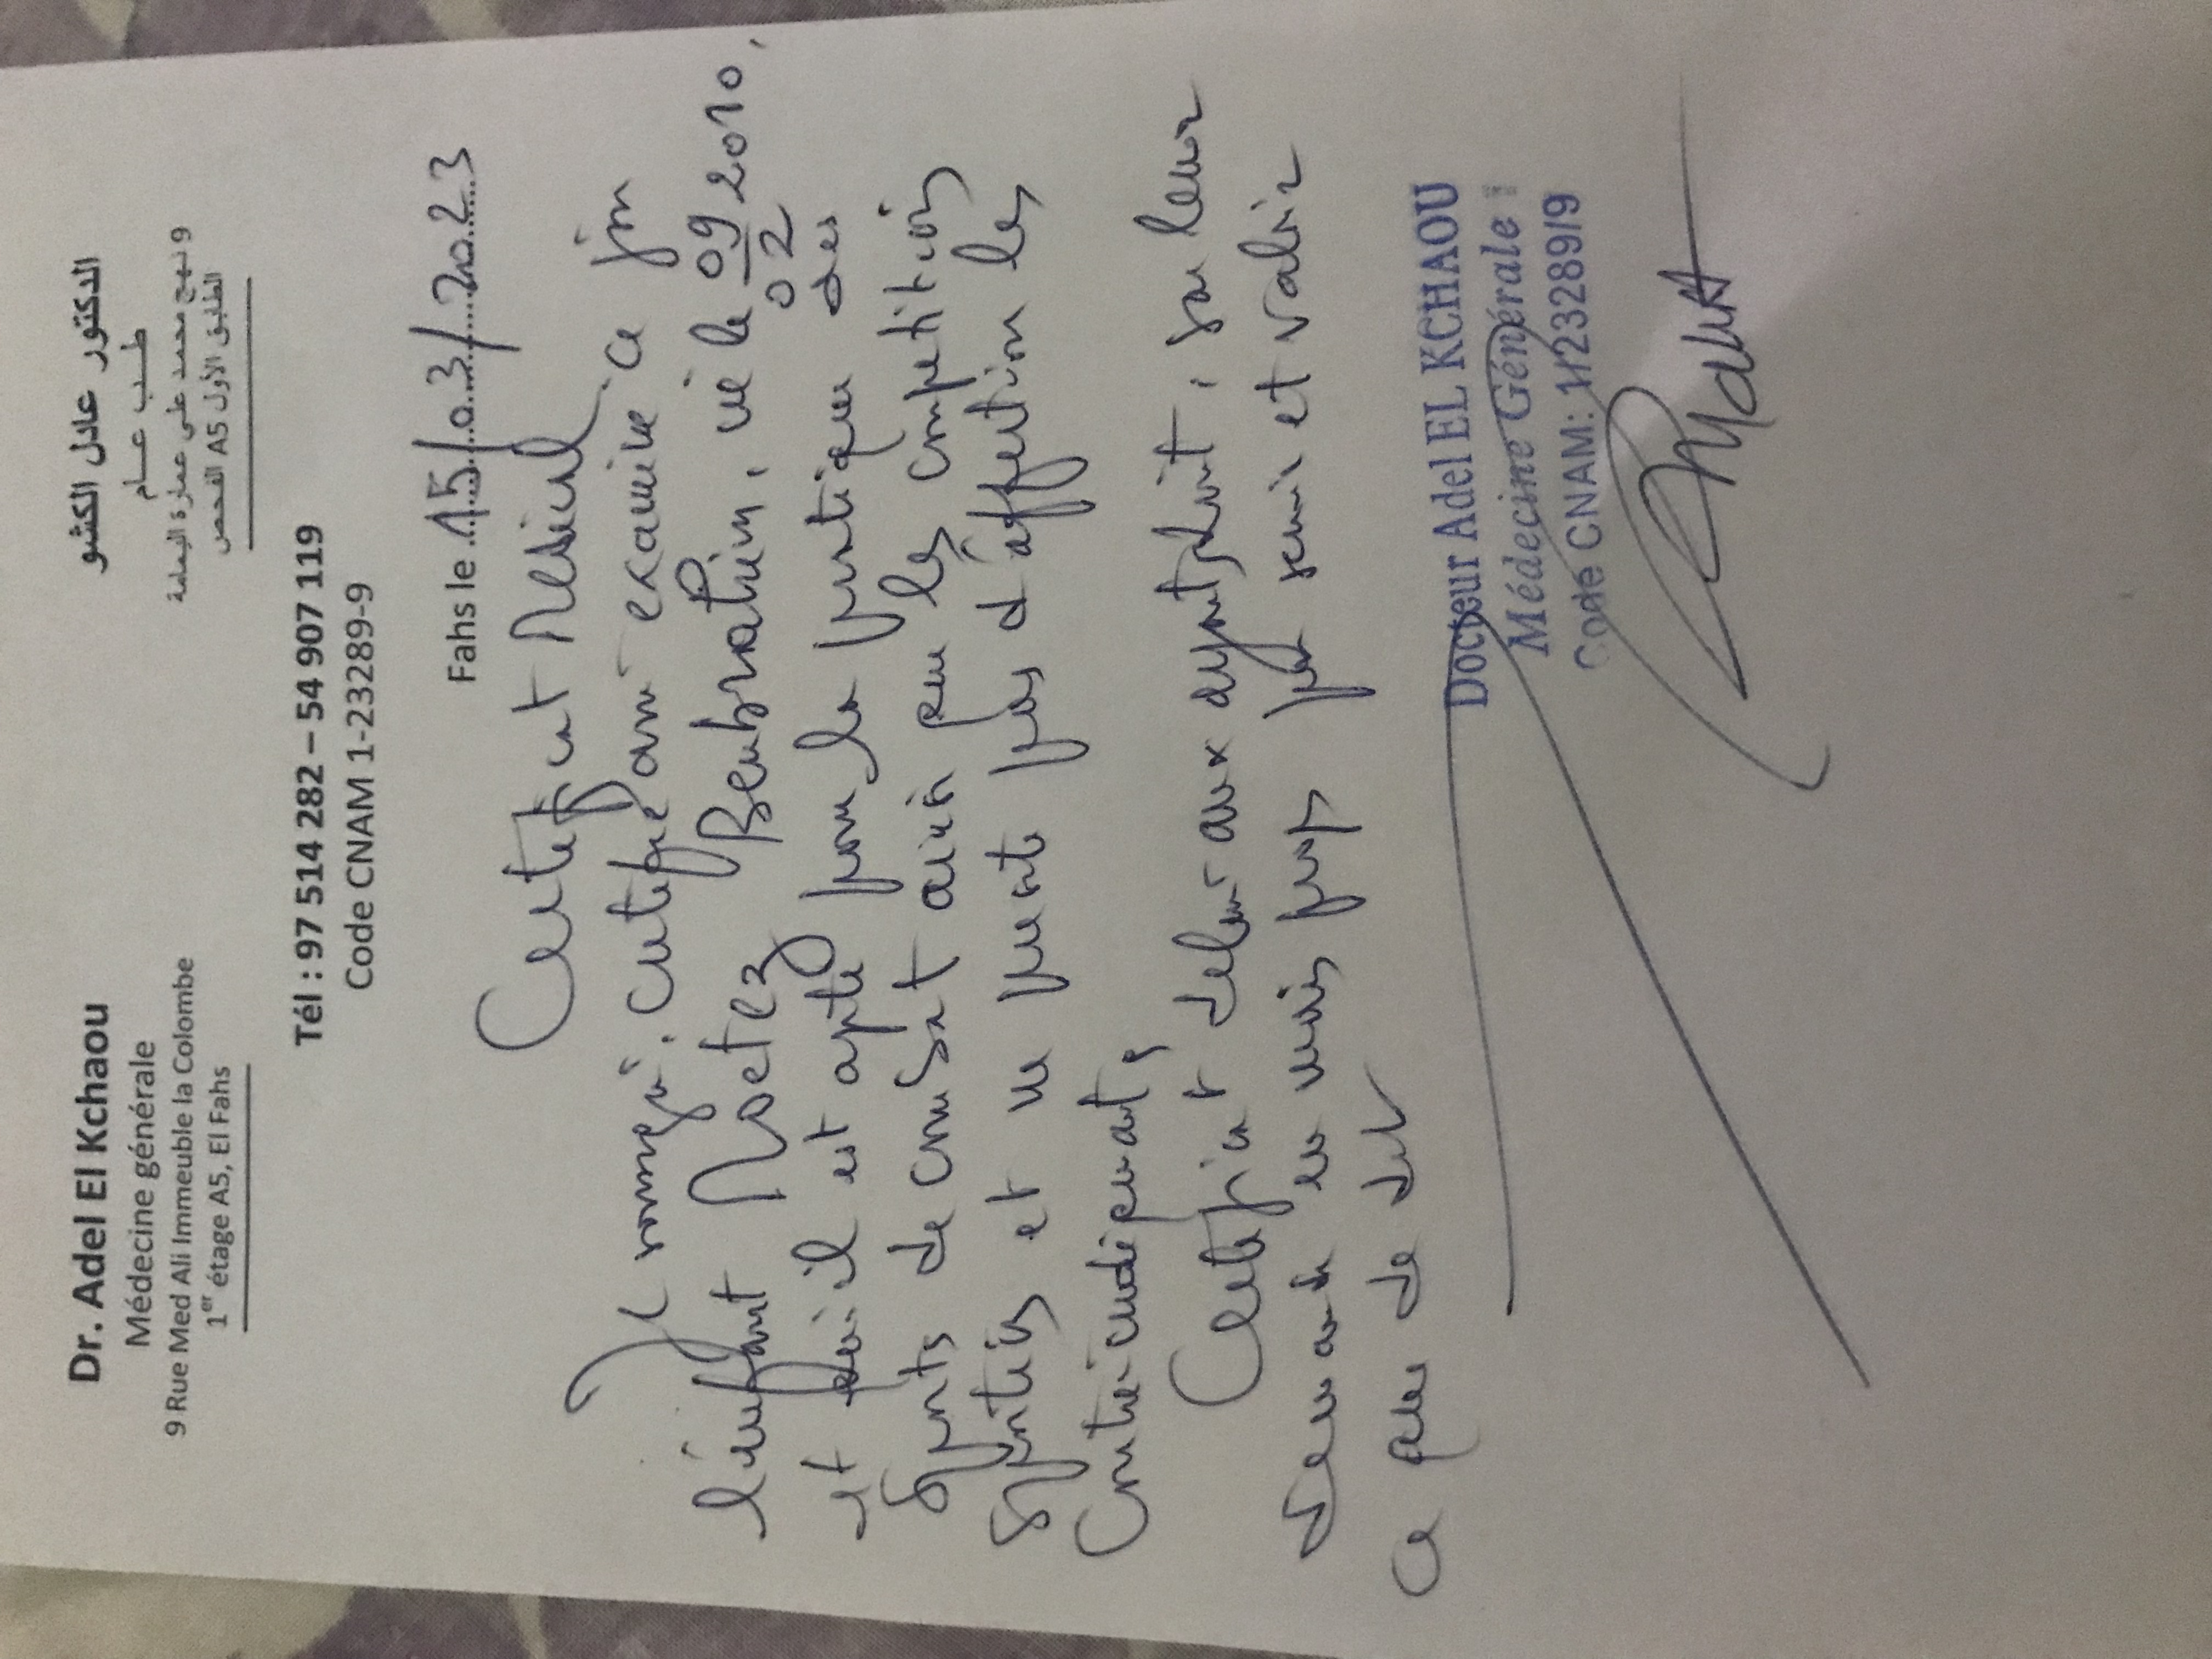 Dr. Adel El Kchaou
Médecine générale
9 Rue Med Ali Immeuble la Colombe
1er étage A5, El Fahs
الدكتور عادل الكشو
طب عام
9 نهج محمد علي عمارة اليمامة
الطابق الأول A5 الفحص
Tél : 97 514 282 – 54 907 119
Code CNAM 1-23289-9
Fahs le 15/03/2023
Certificat Médical
Je soussigné, certifie avoir examiné ce jour
l'enfant Moetez, né le 09/02 2010,
et qu'il est apte pour la pratique des
sports de combat ainsi que les compétitions
sportives et ne présente pas d'affection
contre-indiquante,
Certificat délivré aux ayant droit, sur leur
demande en mains propres pour servir et valoir
ce que de droit
Docteur Adel EL KCHAOU
Médecine Générale
Code CNAM: 1/23289/9